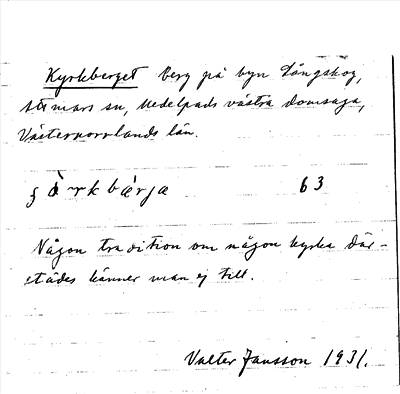 Kyrkberget berg på byn Långskog,
Stöde sn, Medelpads västra domsaga,
Västernorrlands län.
63
Någon tradition om någon kyrka där-
städes känner man ej till.
Valter Jansson 1931.